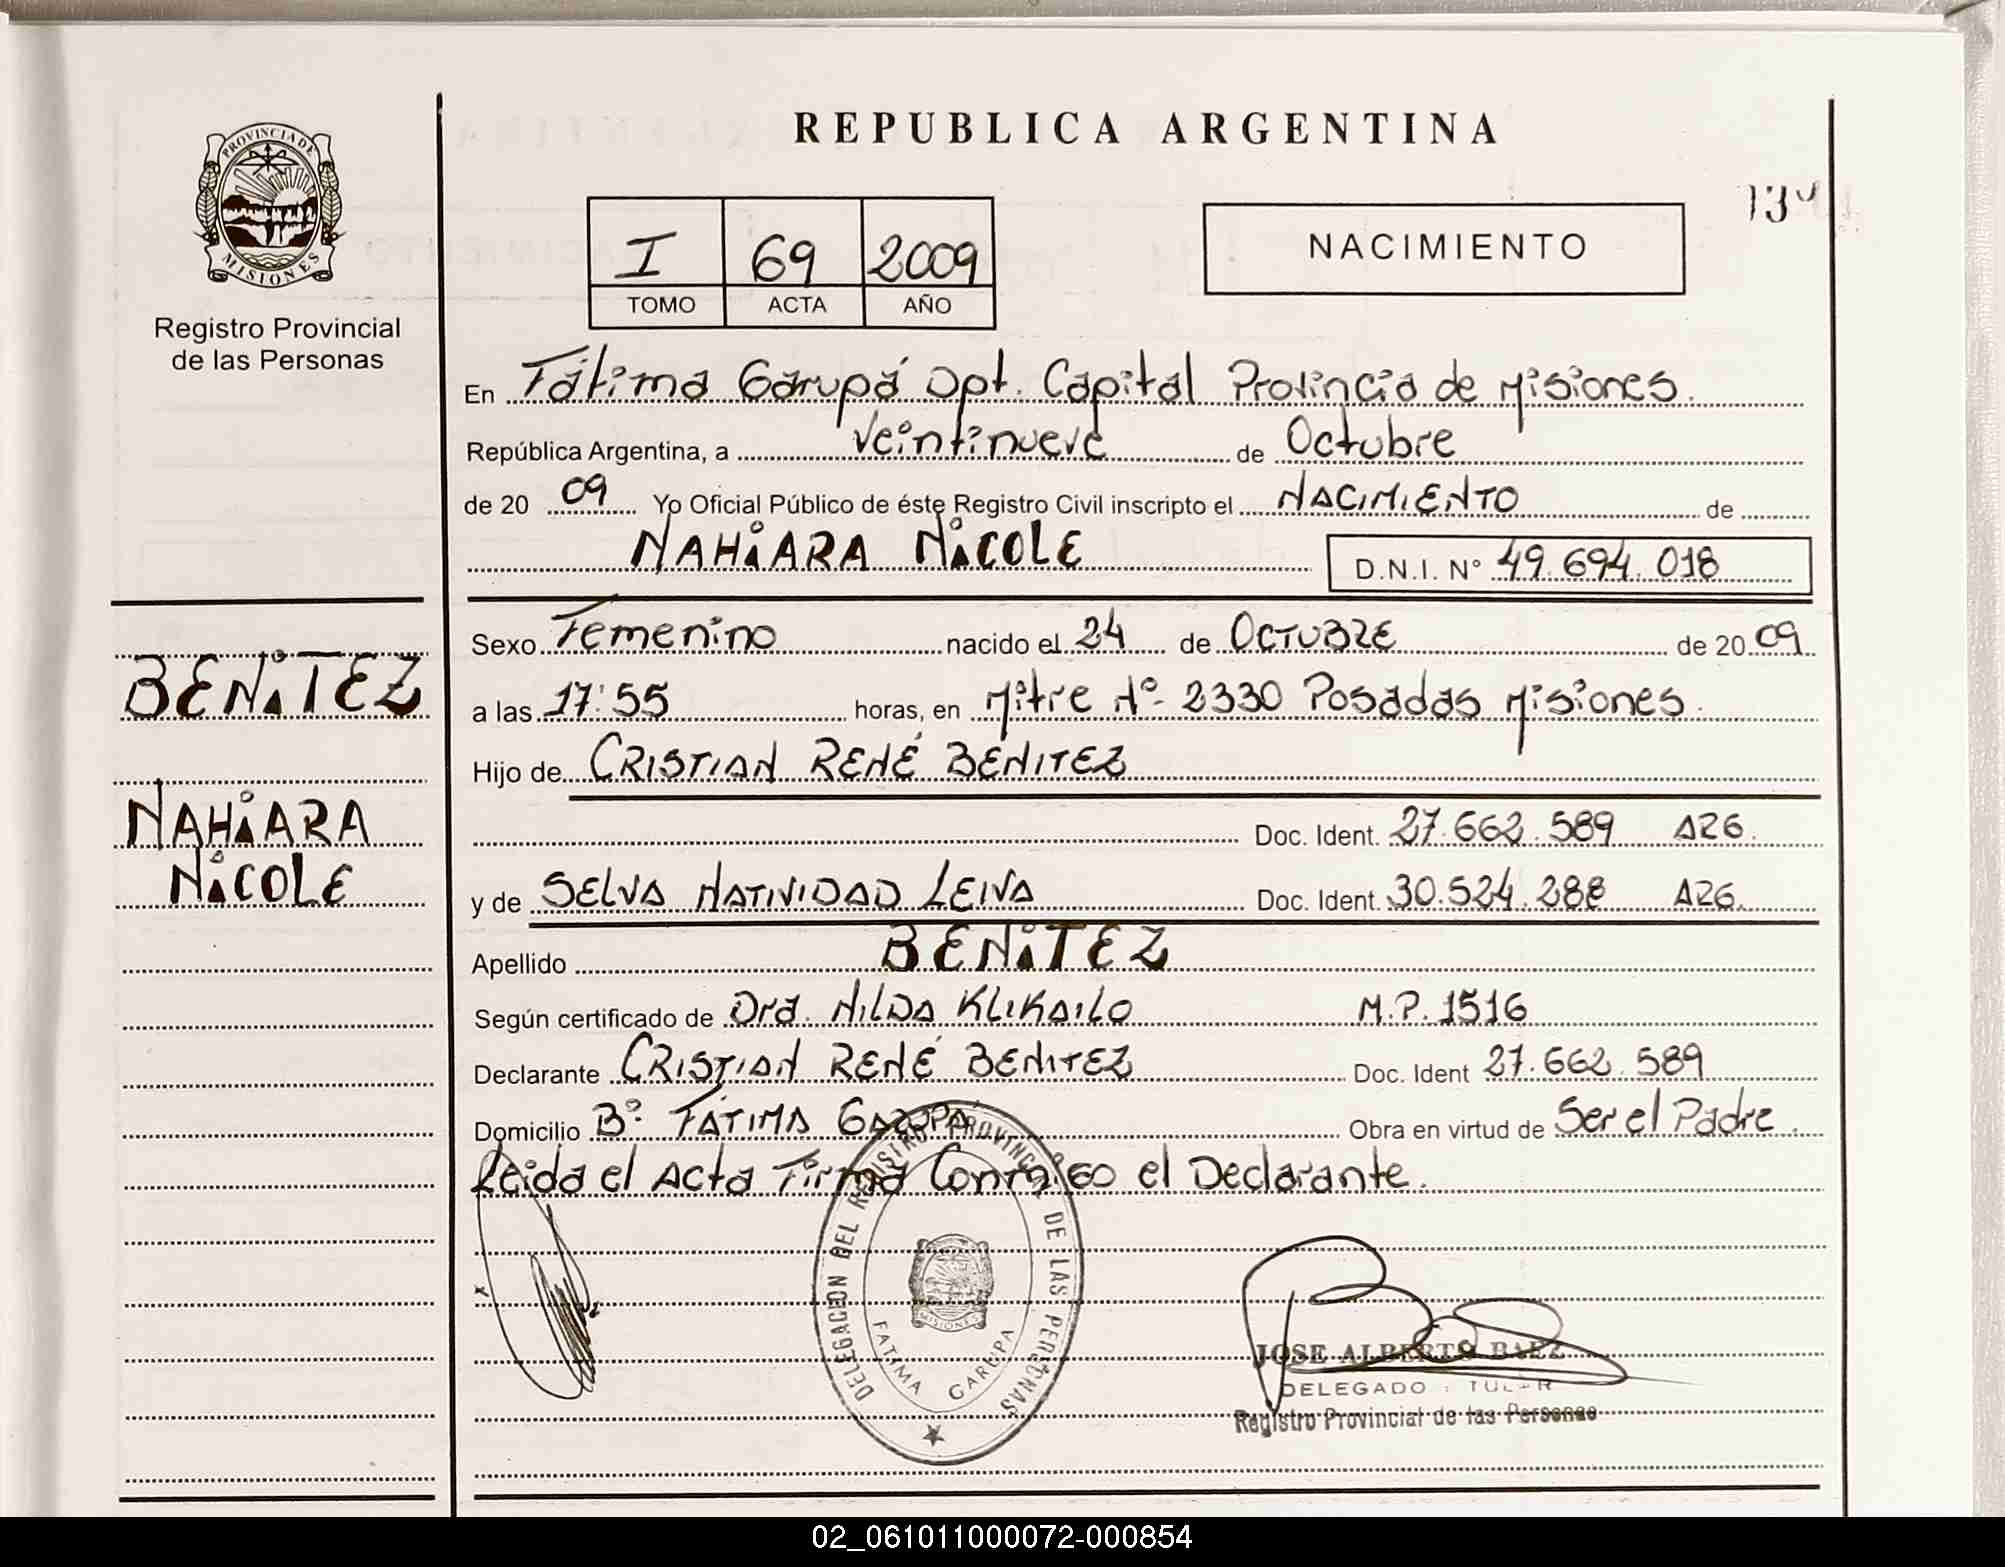 REPUBLICA ARGENTINA
PROVINCIA DE
MISIONES
Registro Provincial
de las Personas
I 69 2009
TOMO ACTA AÑO
NACIMIENTO
En Fátima Garupá Dpt. Capital Provincia de Misiones.
República Argentina, a Veintinueve de Octubre
de 20 09 Yo Oficial Público de éste Registro Civil inscripto el NACIMIENTO de
NAHIARA NICOLE D.N.I. N° 49.694.018
Sexo Femenino nacido el 24 de OCTUBRE de 20 09
a las 17:55 horas, en Mitre N°- 2330 Posadas Misiones.
Hijo de CRISTIAN RENÉ BENITEZ
Doc. Ident. 27.662.589 ARG.
y de SELVA NATIVIDAD LEIVA Doc. Ident. 30.524.288 ARG.
Apellido BENITEZ
Según certificado de Dra. NILDA KLIKAILO M.P. 1516
Declarante CRISTIAN RENÉ BENITEZ Doc. Ident 27.662.589
Domicilio B° FÁTIMA GARUPÁ Obra en virtud de Ser el Padre.
Leida el Acta Firma Conmigo el Declarante.
BENITEZ
NAHIARA
NICOLE
DELEGACION DEL REGISTRO PROVINCIAL DE LAS PERSONAS
MISIONES
FATIMA GARUPA
JOSE ALBERTO BAEZ
DELEGADO TITULAR
Registro Provincial de las Personas
02_061011000072-000854